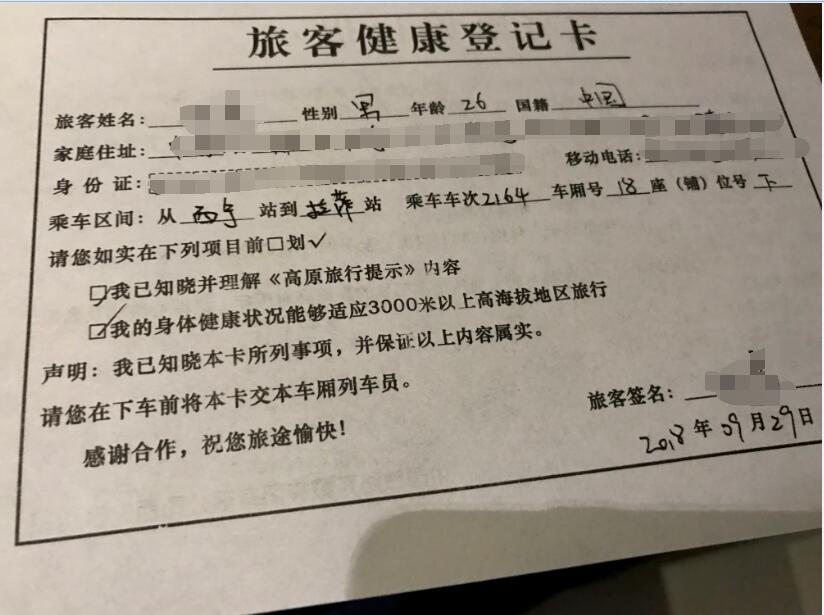 旅客健康登记卡
旅客姓名: 性别 男 年龄 26 国籍 中国
家庭住址:
身份证: 移动电话:
乘车区间: 从 西宁 站到 拉萨 站 乘车车次 2164 车厢号 18 座(铺)位号 下
请您如实在下列项目前□划✓
☑我已知晓并理解《高原旅行提示》内容
☑我的身体健康状况能够适应3000米以上高海拔地区旅行
声明: 我已知晓本卡所列事项, 并保证以上内容属实。
请您在下车前将本卡交本车厢列车员。
感谢合作, 祝您旅途愉快!
旅客签名:
2018年09月29日